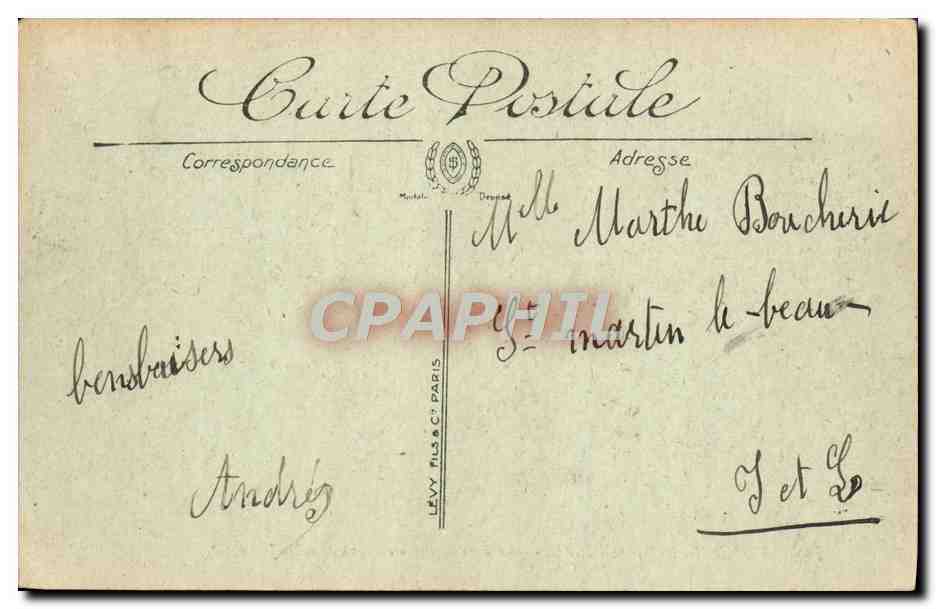 Carte Postale
Correspondance
Adresse
Modèle Déposé
Melle Marthe Boucherie
St martin le-beau
I et L
bensbaisers
André
LÉVY FILS & Cie PARIS
CPAPHIL